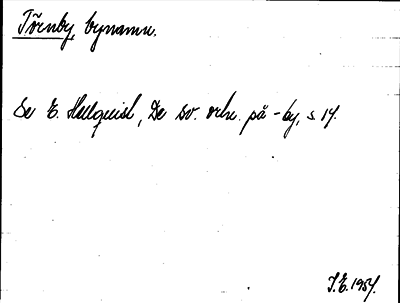 Törnby, bynamn.
Se E. Hellquist, De sv. ortn. på -by, s. 14.
J.E. 1954.